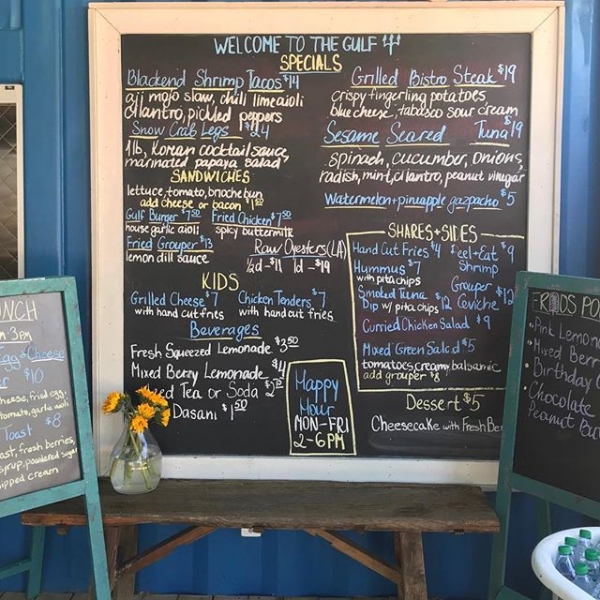 WELCOME TO THE GULF
SPECIALS
Blackend Shrimp Tacos $14
aji mojo slaw, chili lime aioli
cilantro, pickled peppers
Snow Crab Legs
1lb, Korean cocktail sauce
marinated papaya salad
SANDWICHES
lettuce, tomato, brioche bun
add cheese or bacon
Gulf Burger $7.50 Fried Chicken $7.50
house garlic aioli spicy buttermilk
Fried Grouper $13
lemon dill sauce
Raw Oysters (LA)
1/2d - $11 1d - $19
KIDS
Grilled Cheese $7 Chicken Tenders $7
with hand cut fries with hand cut fries
Beverages
Fresh Squeezed Lemonade $3.50
Mixed Berry Lemonade $4
Tea or Soda
Dasani $1.50
Happy
Hour
MON-FRI
2-6PM
Grilled Bistro Steak $19
crispy fingerling potatoes
blue cheese, tabasco sour cream
Sesame Seared Tuna $19
spinach, cucumber, onions,
radish, mint, cilantro, peanut vinegar
Watermelon + pineapple gazpacho $5
SHARES + SIDES
Hand Cut Fries $4
Hummus $7
with pita chips
Smoked Tuna $12
Dip w/ pita chips
Peel + Eat $9
Shrimp
Grouper $12
Ceviche
Curried Chicken Salad $9
Mixed Green Salad $5
tomatoes, creamy balsamic
add grouper $8
Dessert $5
Cheesecake with Fresh Ber
NCH
3PM
Egg + Cheese
$10
cheese, fried egg,
tomato, garlic aioli
Toast $8
ast, fresh berries,
syrup, powdered sugar
whipped cream
FRODS PO
Pink Lemona
Mixed Berr
Birthday C
Chocolate
Peanut Bu